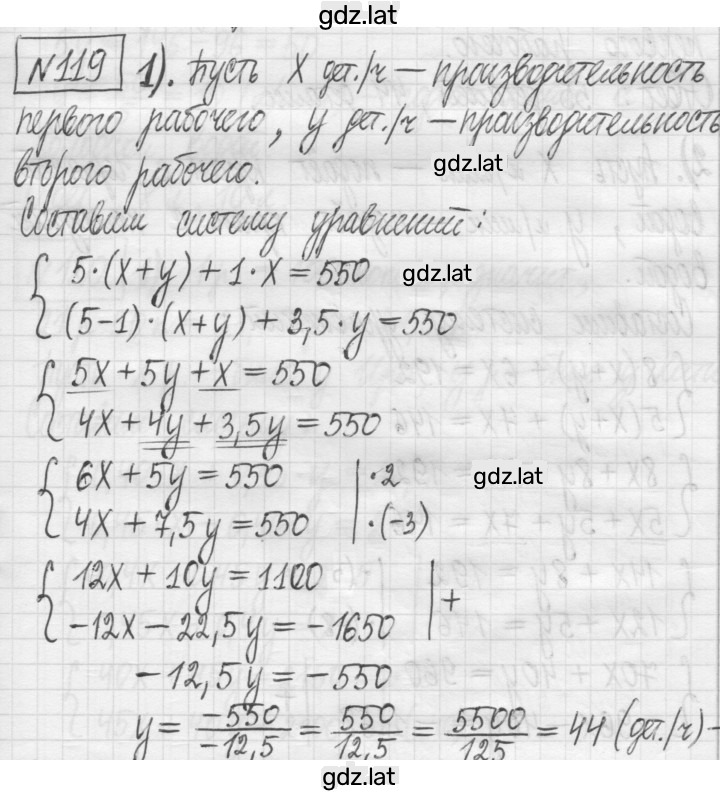 gdz.lat
№119 1). Пусть x дет./ч — производительность
первого рабочего, y дет./ч — производительность
второго рабочего.
gdz.lat
Составим систему уравнений:
5·(x+y)+1·x=550
gdz.lat
(5-1)·(x+y)+3,5·y=550
5x+5y+x=550
4x+4y+3,5y=550
6x+5y=550 |·2
gdz.lat
4x+7,5y=550 |·(-3)
12x+10y=1100 |+
-12x-22,5y=-1650
-12,5y=-550
y=-550/-12,5=550/12,5=5500/125=44(дет./ч)-
gdz.lat